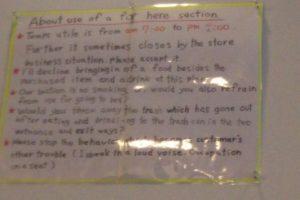 About use of a for here section
★ Temps utile is from am 7:00 to pm 2:00.
Further it sometimes closes by the store
business situation. please accept it.
★ I'd decline bringing in of a food besides the
purchased item and a drink at this
★ Our section is no smoking would you also refrain
from
★ Would you throw away the trash which has gone out
after eating and drinking to the trash can in the two
entrance and exit ways?
★ Please stop the behavior customer's
other trouble (I speak in a loud voice. Occupation
on a seat)